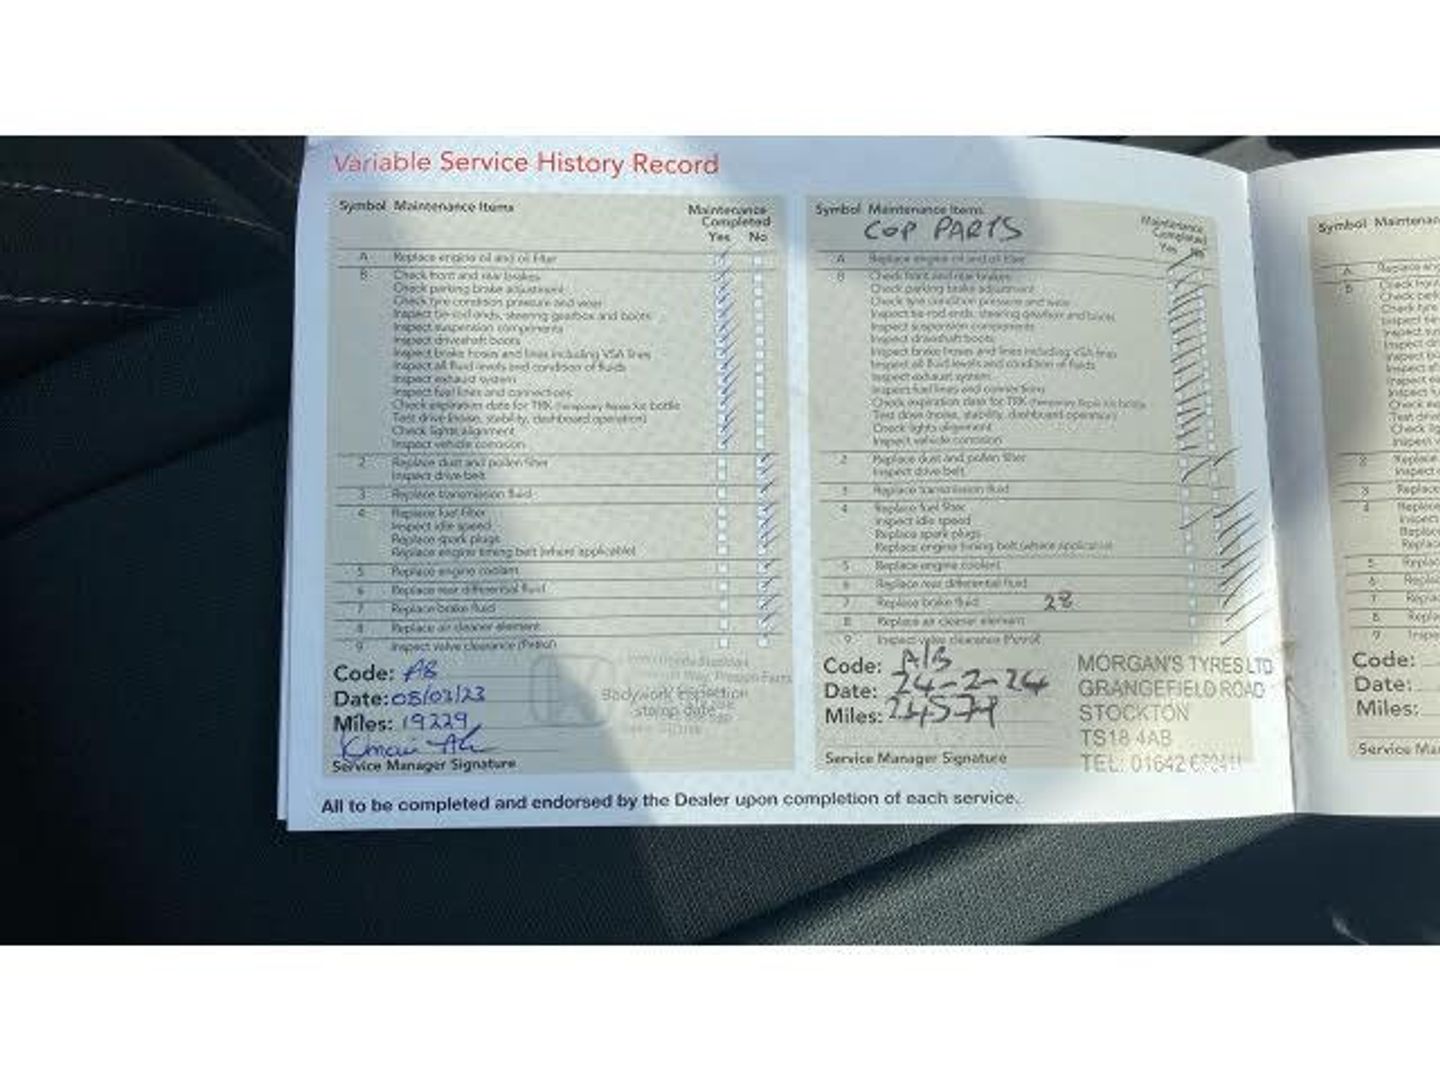 Variable Service History Record
Symbol Maintenance Items
Maintenance
Completed
Yes No
A Replace engine oil and oil filter
B Check front and rear brakes
Check parking brake adjustment
Check tyre condition pressure and wear
Inspect tie-rod ends, steering gearbox and boots
Inspect suspension components
Inspect driveshaft boots
Inspect brake hoses and lines including VSA lines
Inspect all fluid levels and condition of fluids
Inspect exhaust system
Inspect fuel lines and connections
Check expiration date for TRK (Temporary Repair Kit) bottle
Test drive (noise, stability, dashboard operation)
Check lights alignment
Inspect vehicle corrosion
2 Replace dust and pollen filter
Inspect drive belt
3 Replace transmission fluid
4 Replace fuel filter
Inspect idle speed
Replace spark plugs
Replace engine timing belt (where applicable)
5 Replace engine coolant
6 Replace rear differential fluid
7 Replace brake fluid
8 Replace air cleaner element
9 Inspect valve clearance (Petrol)
Code: AB
Date: 05/03/23
Miles: 19229
Service Manager Signature
Bodywork inspection
stamp date
Symbol Maintenance Items
COP PARTS
Maintenance
Completed
Yes No
A Replace engine oil and oil filter
B Check front and rear brakes
Check parking brake adjustment
Check tyre condition pressure and wear
Inspect tie-rod ends, steering gearbox and boots
Inspect suspension components
Inspect driveshaft boots
Inspect brake hoses and lines including VSA lines
Inspect all fluid levels and condition of fluids
Inspect exhaust system
Inspect fuel lines and connections
Check expiration date for TRK (Temporary Repair Kit) bottle
Test drive (noise, stability, dashboard operation)
Check lights alignment
Inspect vehicle corrosion
2 Replace dust and pollen filter
Inspect drive belt
3 Replace transmission fluid
4 Replace fuel filter
Inspect idle speed
Replace spark plugs
Replace engine timing belt (where applicable)
5 Replace engine coolant
6 Replace rear differential fluid
7 Replace brake fluid 28
8 Replace air cleaner element
9 Inspect valve clearance (Petrol)
Code: A/B
Date: 24-2-24
Miles: 24579
Service Manager Signature
MORGAN'S TYRES LTD
GRANGEFIELD ROAD
STOCKTON
TS18 4AB
TEL: 01642
All to be completed and endorsed by the Dealer upon completion of each service.
Symbol
A
B
2
3
4
5
6
7
8
9
Code:
Date:
Miles:
Service